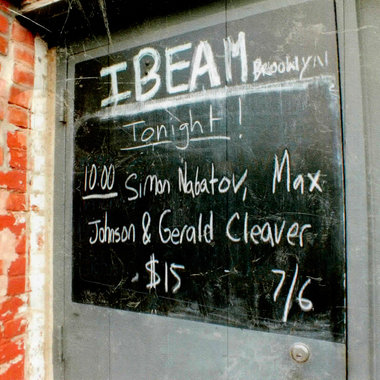 IBEAM Brooklyn
Tonight!
10:00 Simon Nabatov, Max
Johnson & Gerald Cleaver
$15 7/6